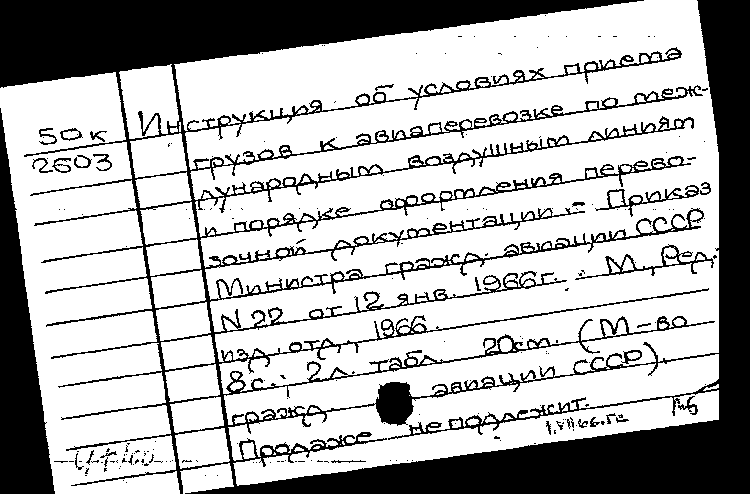 50к
2603
Инструкция об условиях приема
грузов к авиаперевозке по меж-
дународным воздушным линиям
и порядке оформления перево-
зочной документации. - Приказ
Министра гражд. авиации СССР
N 22 от 12 янв. 1966г. - М., Ред.-
изд. отд., 1966.
8с.; 2л. табл. 20см. (М-во
гражд. авиации СССР).
Продаже не подлежит.